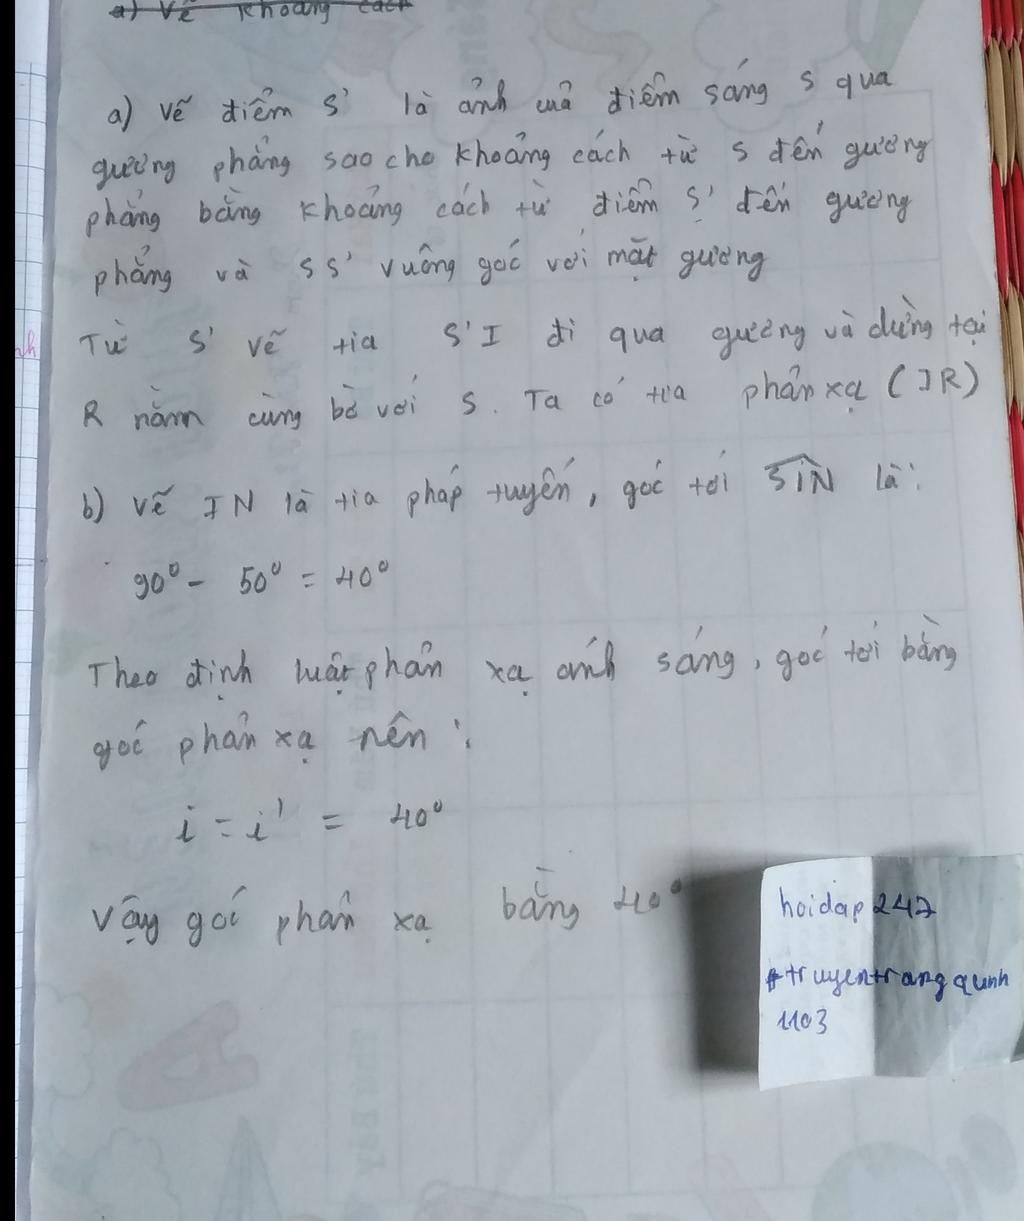 a) Vẽ khoảng cách
a) Vẽ điểm S' là ảnh của điểm sáng S qua
gương phẳng sao cho khoảng cách từ S đến gương
phẳng bằng khoảng cách từ điểm S' đến gương
phẳng và SS' vuông góc với mặt gương
Từ S' vẽ tia S'I đi qua gương và dừng tại
R nằm cùng bờ với S. Ta có tia phản xạ (IR)
b) Vẽ IN là tia pháp tuyến, góc tới SIN là:
90° - 50° = 40°
Theo định luật phản xạ ánh sáng, góc tới bằng
góc phản xạ nên:
i = i' = 40°
Vậy góc phản xạ bằng 40°
hoidap247
#truyentrangqunh
1103